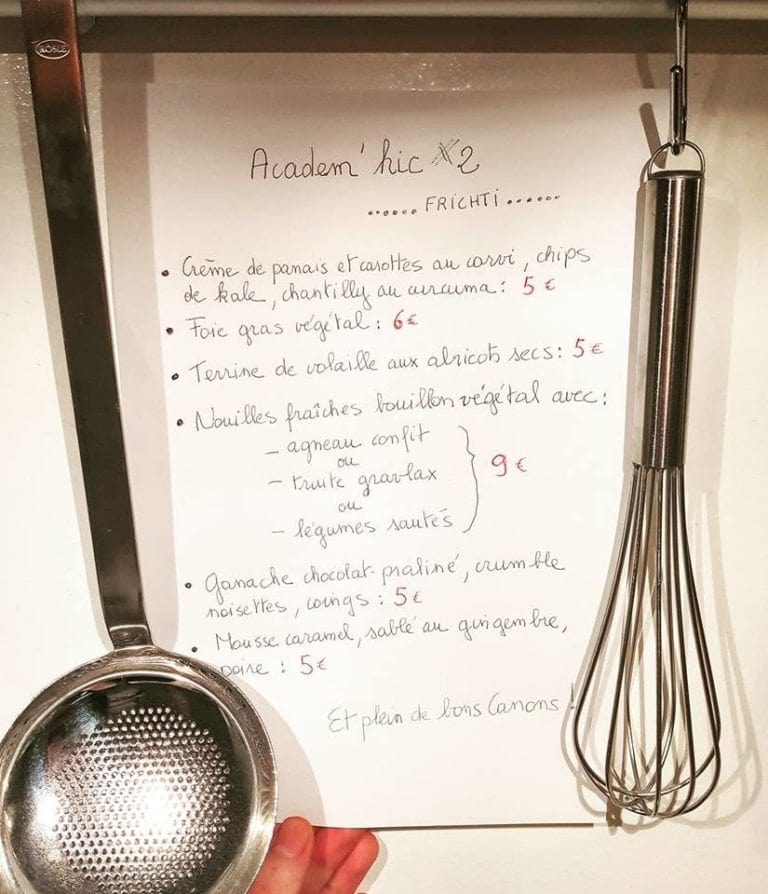 RÖSLE
Academ'hic X2
...... FRICHTI ......
• Crème de panais et carottes au carvi, chips
de kale, chantilly au curcuma : 5 €
• Foie gras végétal : 6 €
• Terrine de volaille aux abricots secs : 5 €
• Nouilles fraîches bouillon végétal avec :
- agneau confit
ou
- truite gravlax
9 €
ou
- légumes sautés
• Ganache chocolat-praliné, crumble
noisettes, coings : 5 €
• Mousse caramel, sablé au gingembre,
poire : 5 €
Et plein de bons Canons !